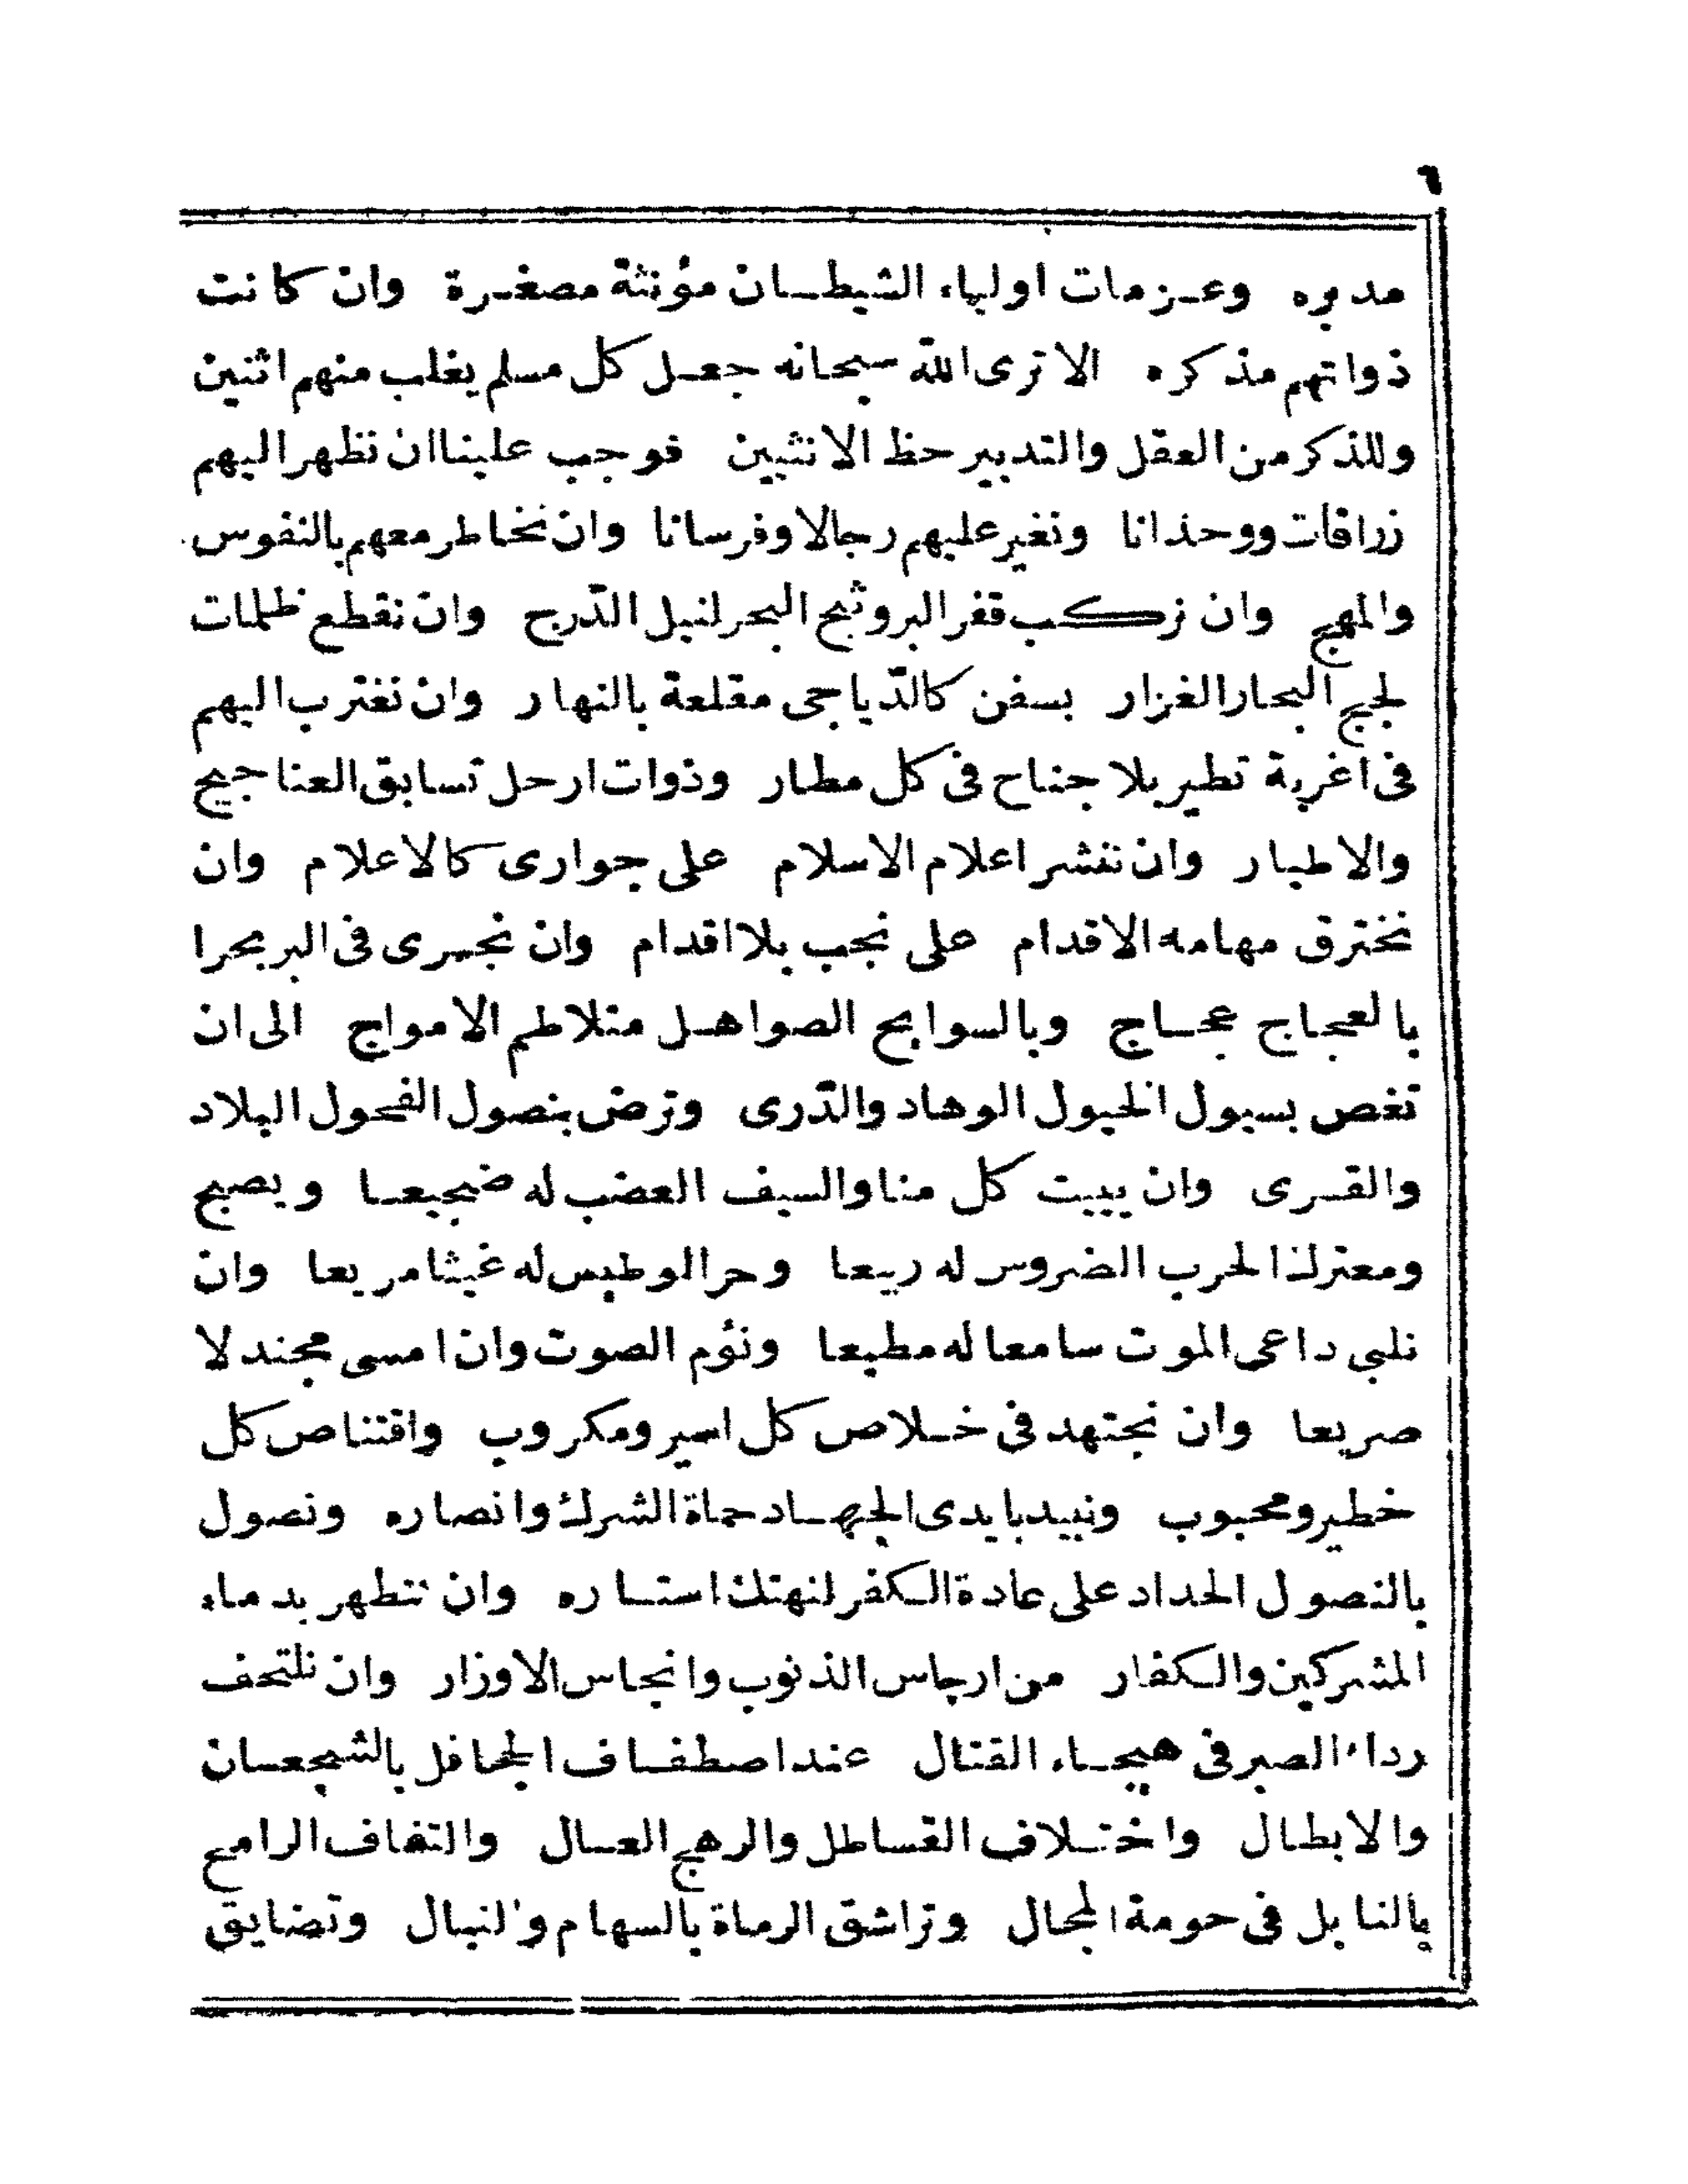 ٦
مدبره وعزمات اولياء الشيطان مؤنثة مصغرة وان كانت
ذواتهم مذكره الا ترى الله سبحانه جعل كل مسلم يغلب منهم اثنين
وللذكر من العقل والتدبير حظ الانثيين فوجب علينا ان نظهر اليهم
زرافات ووحذانا ونغير عليهم رجالا وفرسانا وان نخاطر معهم بالنفوس
والمهج وان نركب قفر البر وثبج البحر لنيل الدّرج وان نقطع ظلمات
لجج البحار الغزار بسفن كالدّياجى مقلعة بالنهار وان نغترب اليهم
فى اغربة تطير بلا جناح فى كل مطار وذوات ارحل تسابق العناجيج
والاطيار وان ننشر اعلام الاسلام على جوارى كالاعلام وان
نخترق مهامه الاقدام على نجب بلا اقدام وان نجرى فى البر بحرا
بالعجاج عجاج وبالسوابح الصواهل متلاطم الامواج الى ان
تغص بسيول الخيول الوهاد والذّرى وترض بنصول الفحول البلاد
والقرى وان يبيت كل منا والسيف العضب له ضجيعا ويصبح
ومعترك الحرب الضروس له ربيعا وحر الوطيس له غيثا مريعا وان
نلبى داعى الموت سامعا له مطيعا ونؤم الصوت وان امسى مجندلا
صريعا وان نجتهد فى خلاص كل اسير ومكروب واقتناص كل
خطير ومحبوب ونبيد بايدى الجهاد حماة الشرك وانصاره ونصول
بالنصول الحداد على عادة الكفر لنهتك استاره وان نتطهر بدماء
المشركين والكفار من ارجاس الذنوب وانجاس الاوزار وان نلتحف
رداء الصبر فى هيجاء القتال عند اصطفاف الجحافل بالشجعان
والابطال واختلاف القساطل والرهج العسال والتفاف الرامح
بالنابل فى حومة المجال وتراشق الرماة بالسهام والنبال وتضايق